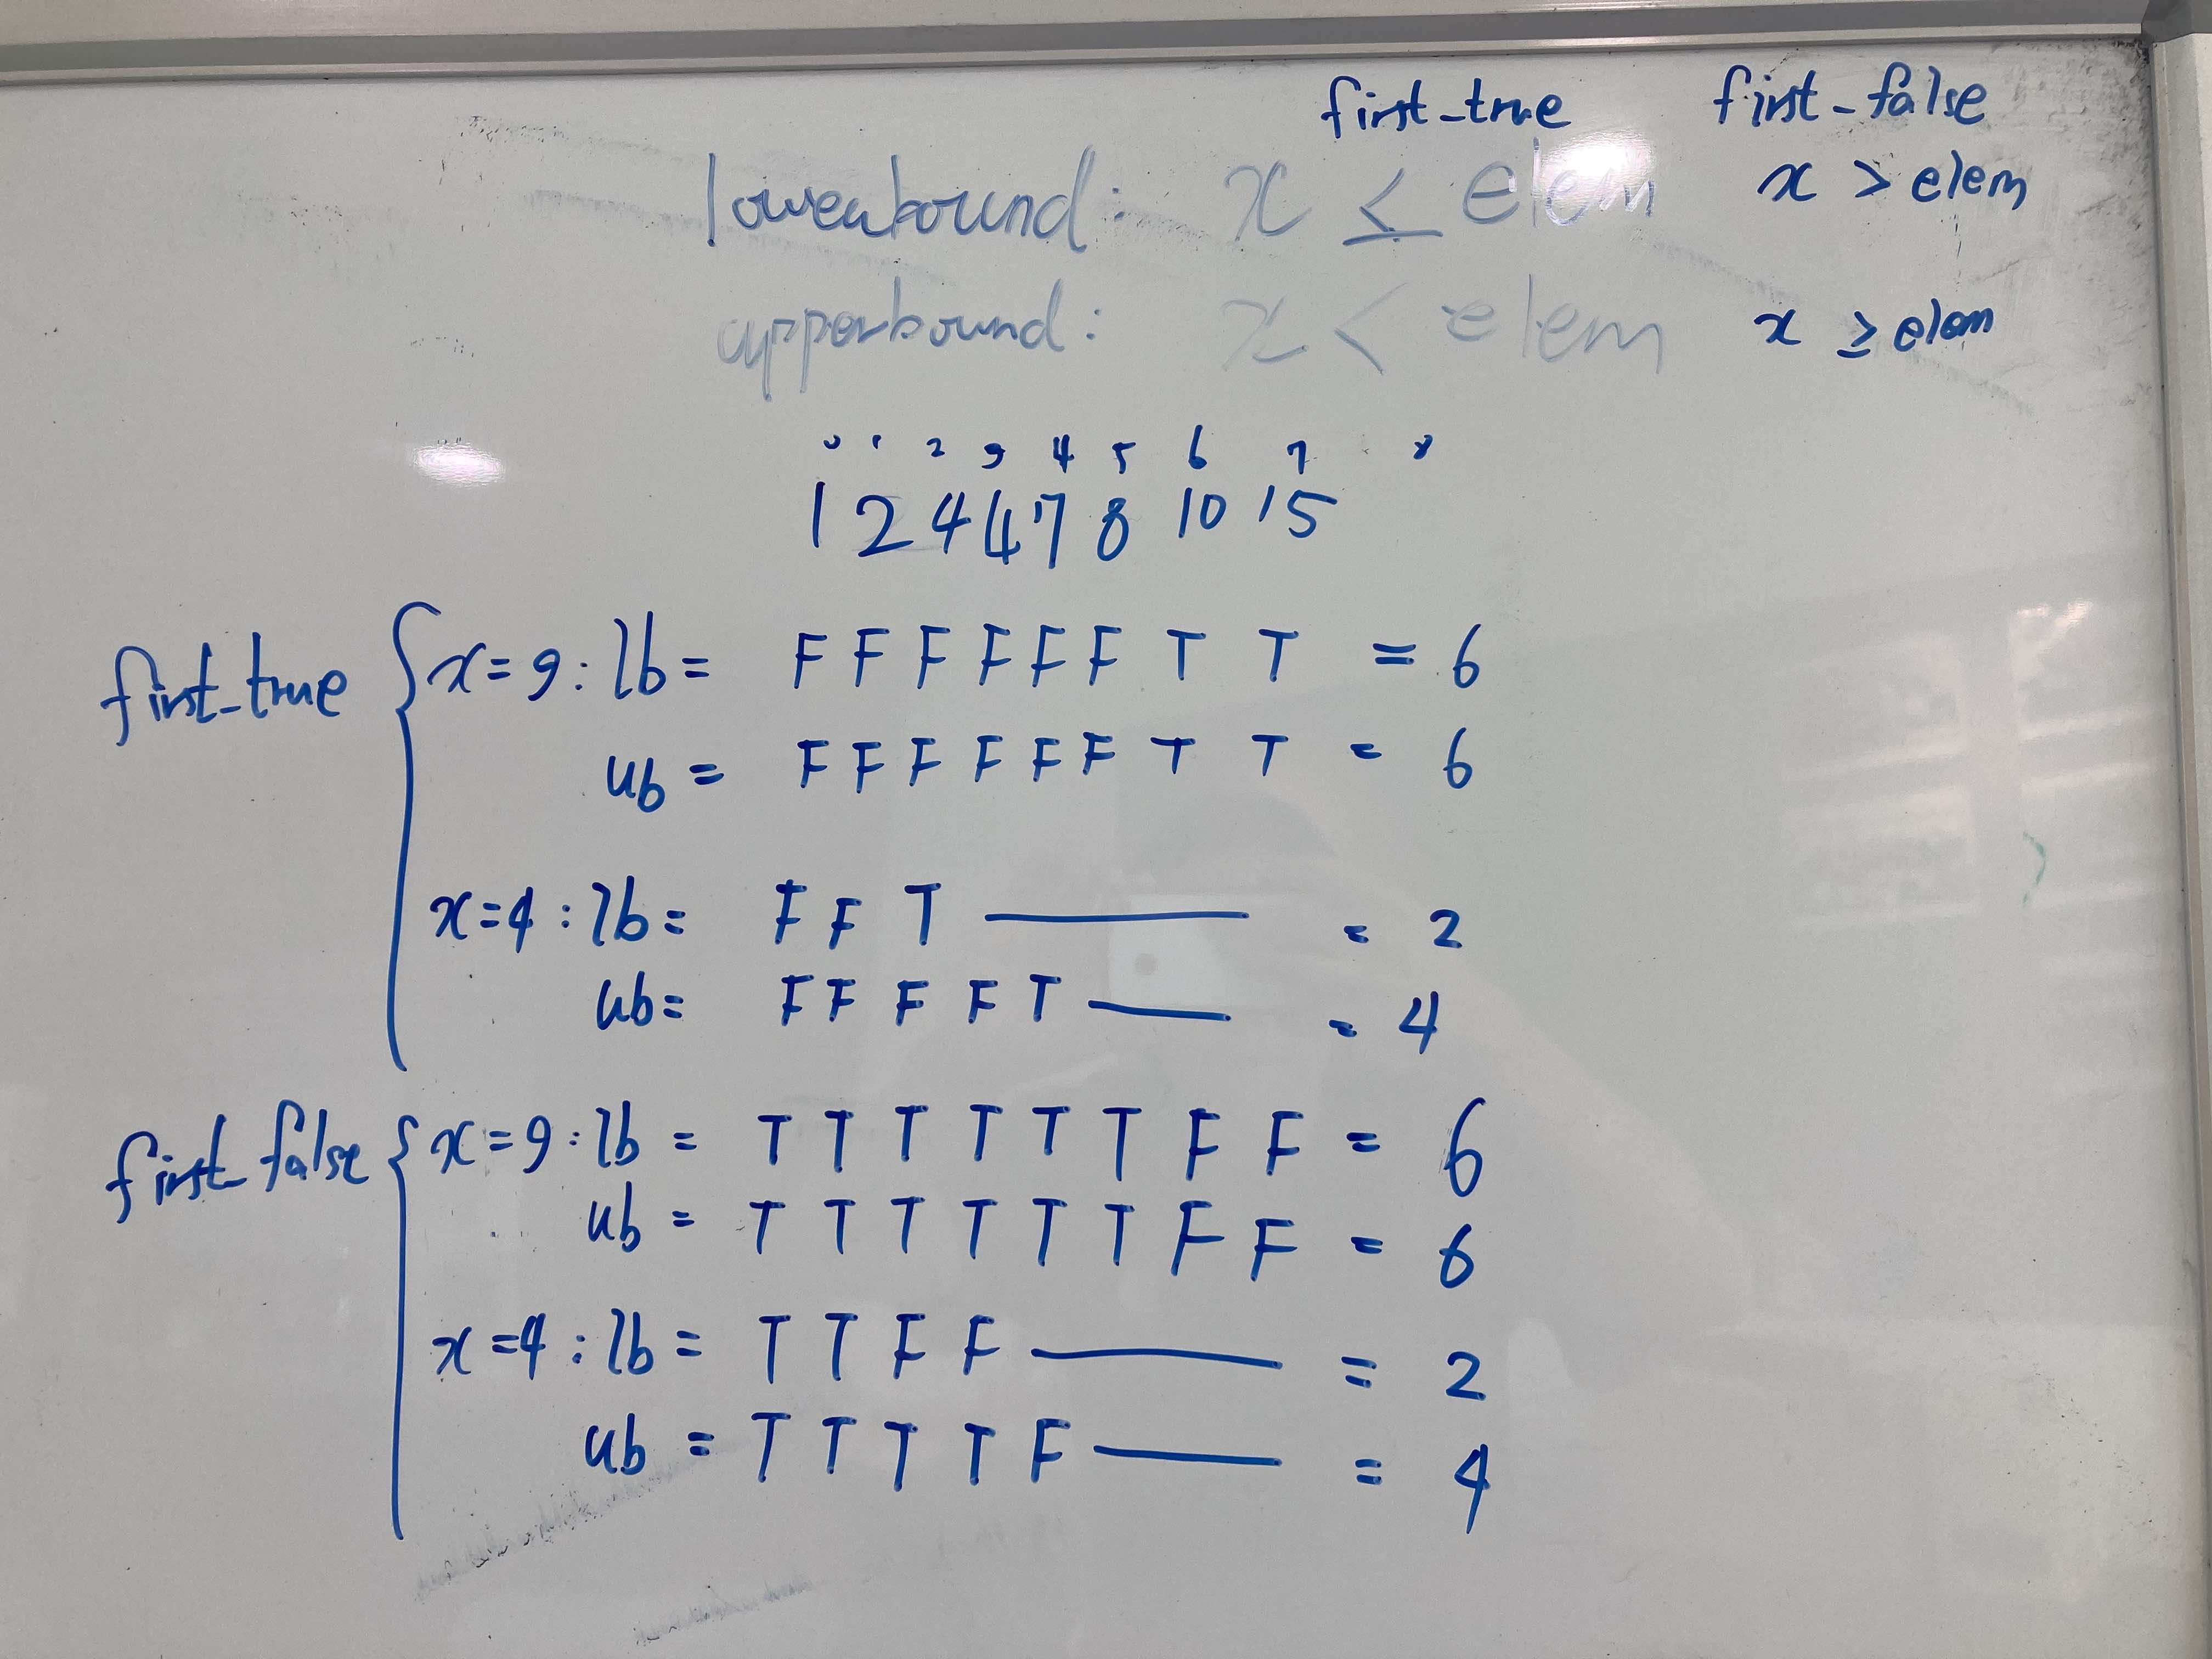 first_true first_false
lowerbound: x ≤ elem x > elem
upperbound: x < elem x ≥ elem
0 1 2 3 4 5 6 7 8
1 2 4 4 7 8 10 15
first_true x=9: lb= F F F F F F T T = 6
ub = F F F F F F T T = 6
x=4: lb= F F T —— = 2
ub= F F F F T —— = 4
first_false x=9: lb = T T T T T T F F = 6
ub = T T T T T T F F = 6
x=4: lb = T T F F —— = 2
ub = T T T T F —— = 4